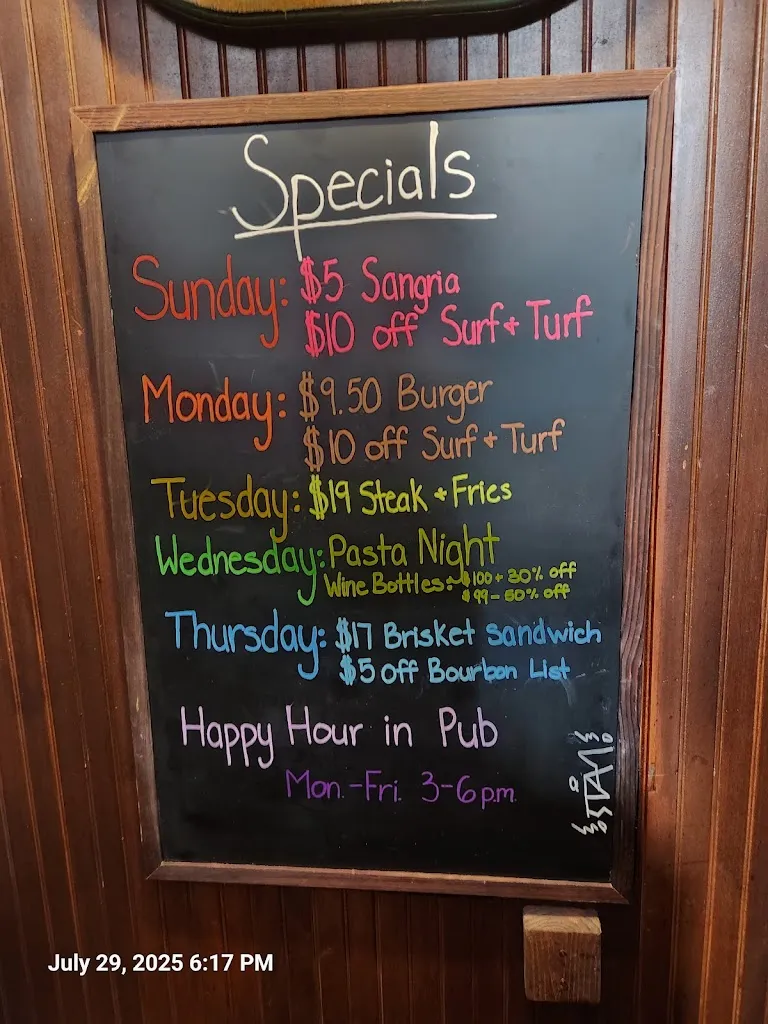 Specials
Sunday: $5 Sangria
$10 off Surf + Turf
Monday: $9.50 Burger
$10 off Surf + Turf
Tuesday: $19 Steak + Fries
Wednesday: Pasta Night
Wine Bottles: $100+ 30% off
$99- 50% off
Thursday: $17 Brisket Sandwich
$5 off Bourbon List
Happy Hour in Pub
Mon.-Fri. 3-6p.m.
July 29, 2025 6:17 PM